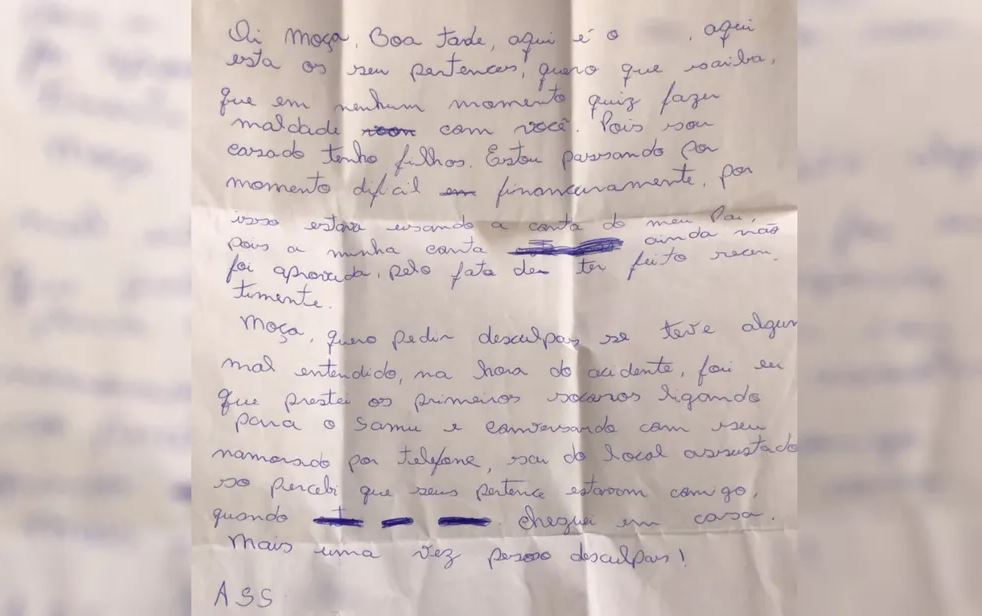 Oi Moça, Boa tarde, aqui é o , aqui
esta os seu pertences, quero que saiba,
que em nenhum momento quiz fazer
maldade com você. Pois sou
casado tenho filhos. Estou passando por
momento dificil financeiramente, por
isso estava usando a conta do meu Pai,
pois a minha conta ainda não
foi aprovada, pelo fata de ter feito recen.
timente.
Moça, quero pedir desculpas se teve algum
mal entendido, na hora do acidente, foi eu
que prestei os primeiros socorros ligando
para o Samu e conversando com seu
namorado por telefone, sai do local assustado
so percebi que seus pertence estavam comigo,
quando cheguei em casa.
Mais uma vez desculpas!
ASS